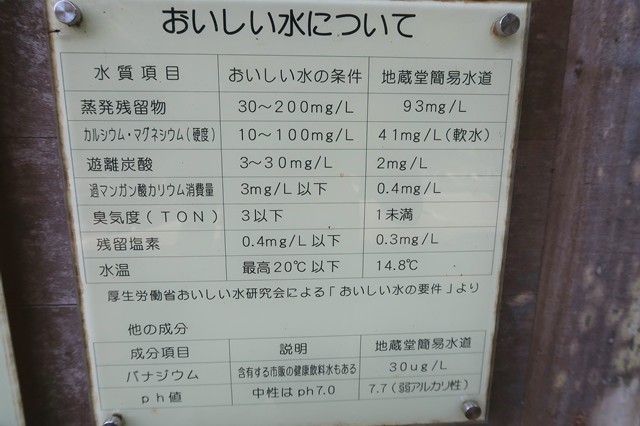 おいしい水について
水質項目 おいしい水の条件 地蔵堂簡易水道
蒸発残留物 30～200mg/L 93mg/L
カルシウム・マグネシウム(硬度) 10～100mg/L 41mg/L(軟水)
遊離炭酸 3～30mg/L 2mg/L
過マンガン酸カリウム消費量 3mg/L以下 0.4mg/L
臭気度(TON) 3以下 1未満
残留塩素 0.4mg/L以下 0.3mg/L
水温 最高20℃以下 14.8℃
厚生労働省おいしい水研究会による「おいしい水の要件」より
他の成分
成分項目 説明 地蔵堂簡易水道
バナジウム 含有する市販の健康飲料水もある 30ug/L
ph値 中性はph7.0 7.7(弱アルカリ性)